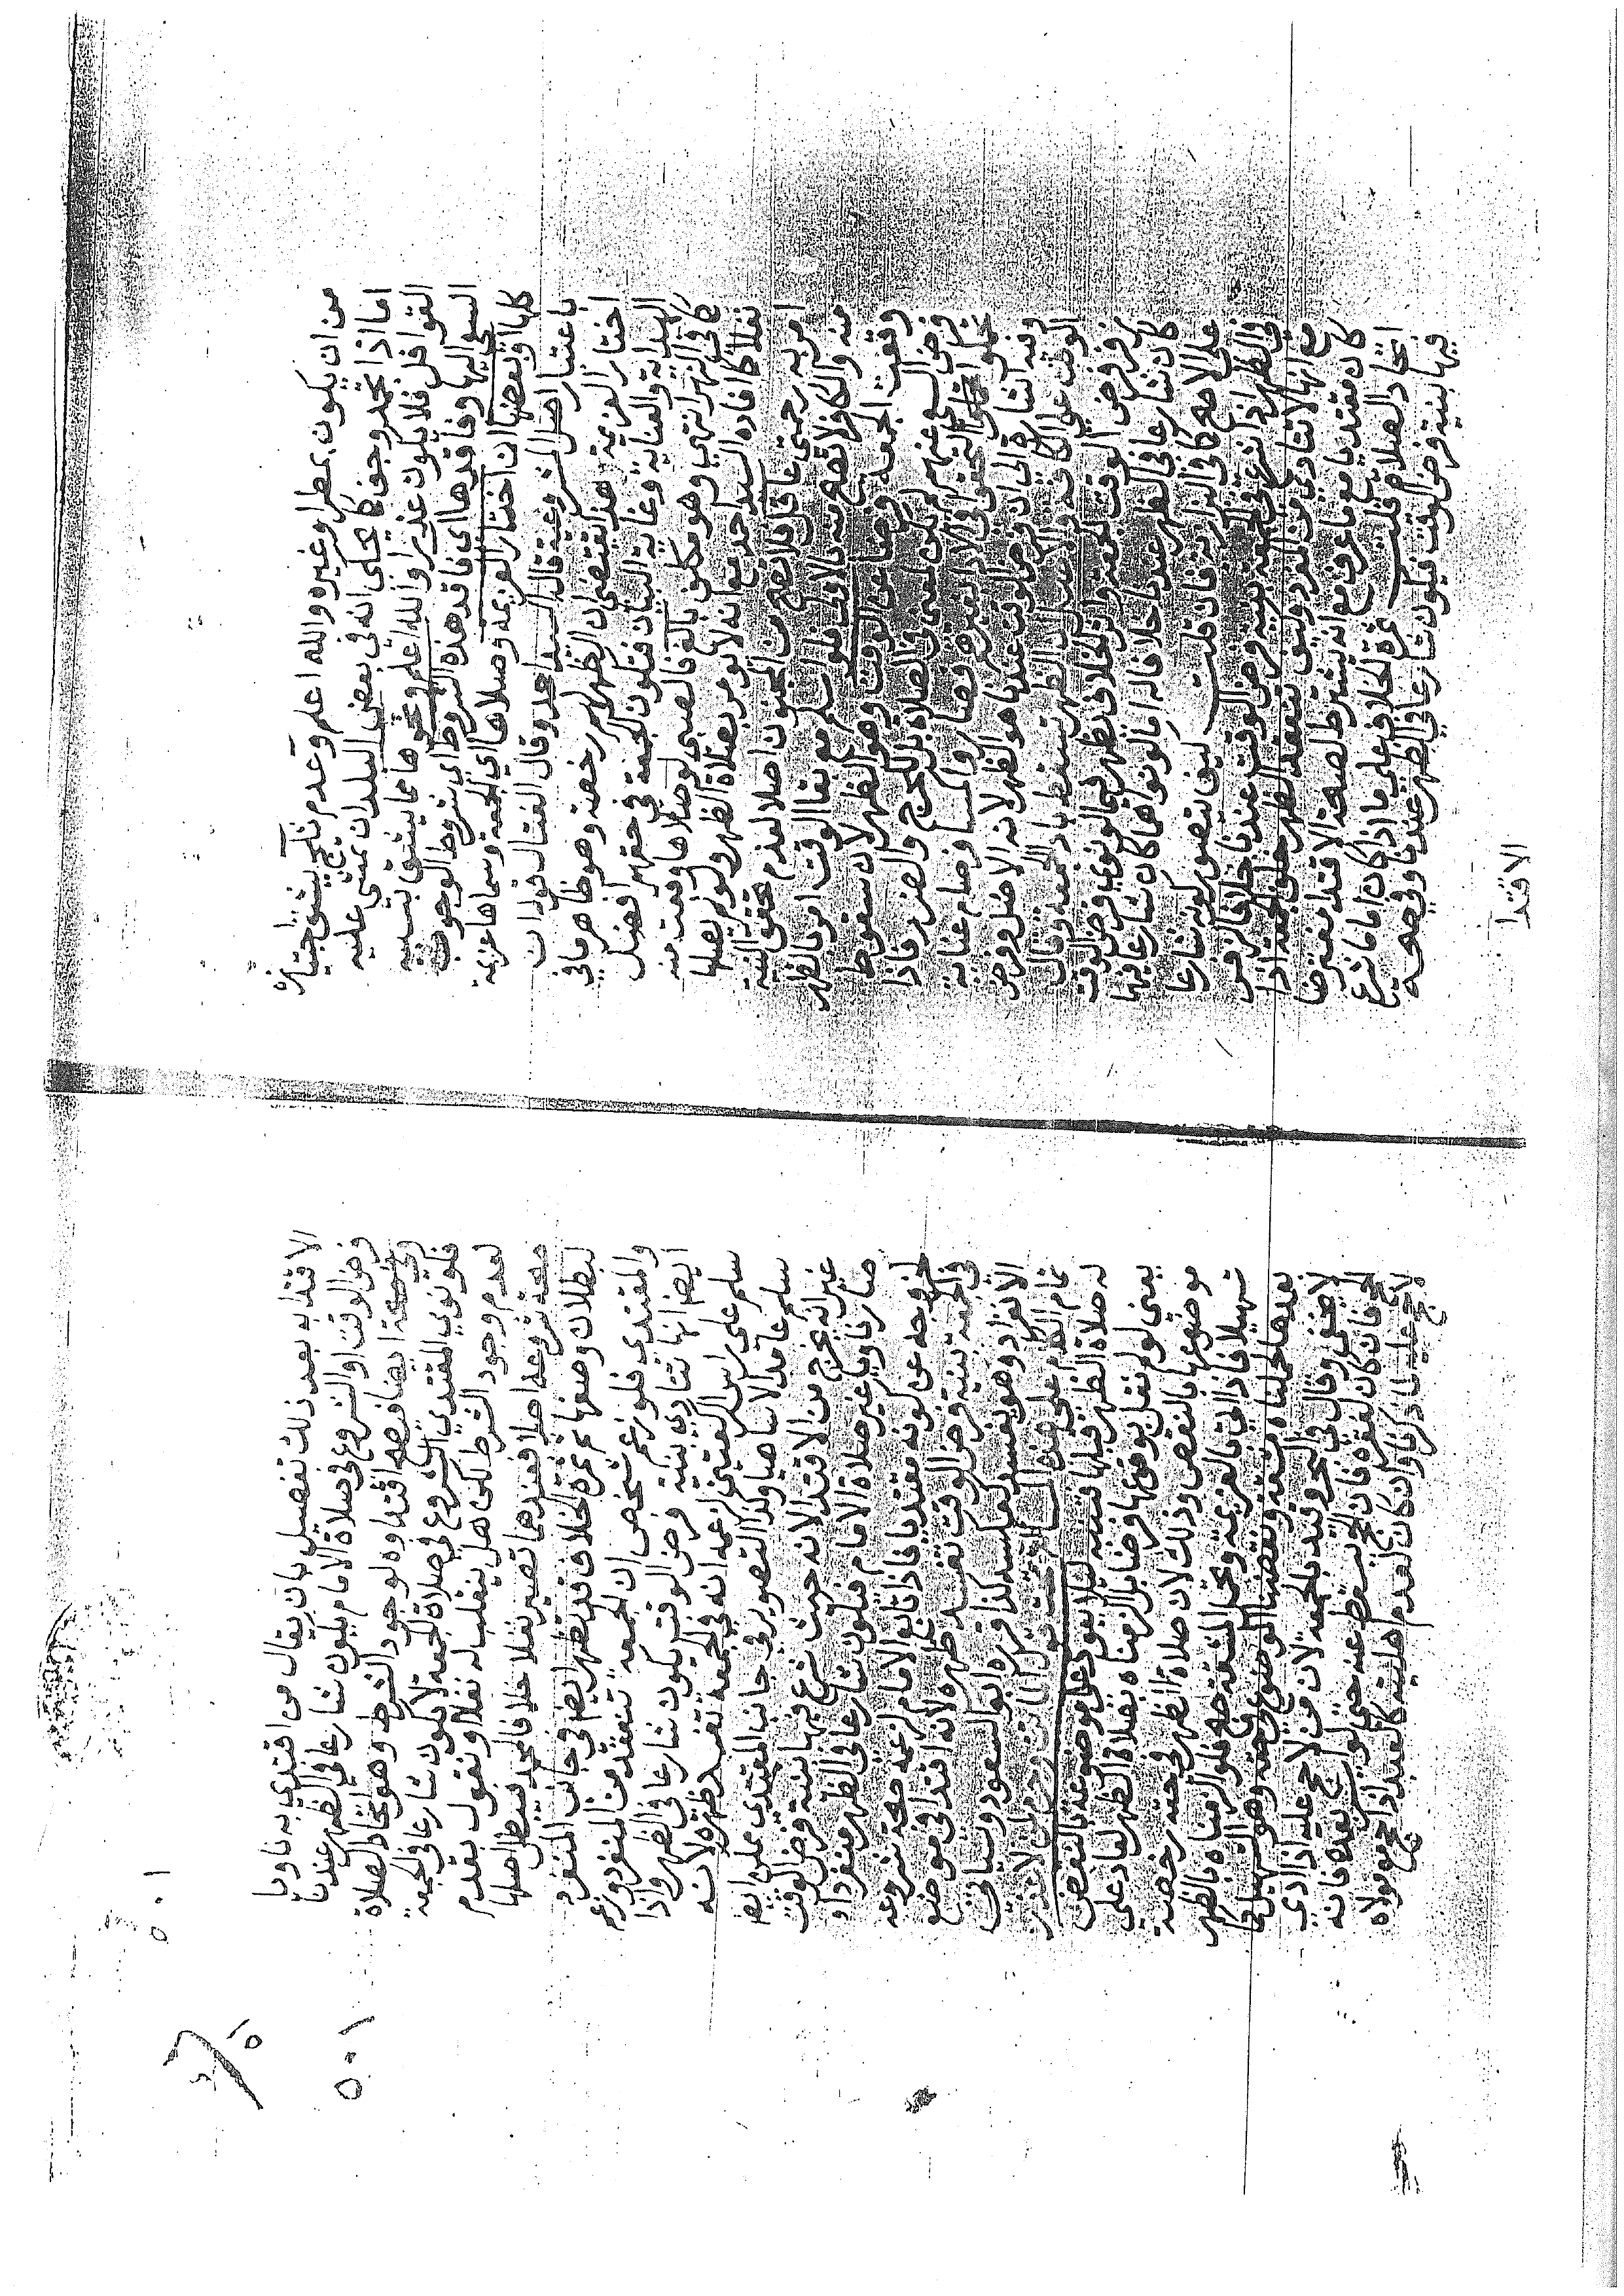 من ان يكون بمطر او غيره والله اعلم وقدم ثلج يشق اجتيازه
اما اذا تجمد وجف كما يحكى انه في بعض البلدان تمشي عليه
القوافل فلا يكون عذرا والله اعلم ونحوها مما يشق بسببه
السعي اليها وفاقدها اي فاقد هذه الشروط اي شروط الوجوب
كلها او بعضها ان اختار العزيمة وصلاها اي الجمعة وسماها عزيمة
باعتبار اصل المشروعية قاله السيد احمد وقال الفتال قوله ان
اختار العزيمة هذا يقتضي ان الظهر لهم رخصة وهو ظاهر ما في
الهداية والعناية وغاية البيان فتكون الجمعة في حقهم افضل
كما في النهر انتهى وهو مكلف بالغ فالصبي لو صلاها وقعت منه
نفلا كما افاده السيد احمد مع انه لا يؤمر بصلاة الظهر ولو لم يصلها
امر به رحمتي عاقل فلا تصح من المجنون اصلا لعدم تحقق النية
منه والكافر لا تصح منه بالاولى فلو اسلم مع بقاء الوقت امر بالظهر
وقعت الجمعة فرضا عن الوقت وهو الظهر لان سقوط
فرض السعي عنهم لم يكن لمعنى في الصلاة بل للحرج والضرر فاذا
تحملوا التحقوا في الاداء بغيرهم وصاروا كمسافر صام عناية
وفيه اشارة الى ان فرض الوقت عندنا هو الظهر لانه الاصل وفرض
الوقت على الكافة والاحتمال الظهر تسقط باداء الجمعة وقال
زفر فرض الوقت الجمعة وثمرة الخلاف تظهر فيما لو نوى فرض الوقت
كان شارعا في الظهر عندنا خلافا له اما لو نواهما كان شارعا فيهما
على الاصح كما في البزازية فان قلت كيف يتصور كونه شارعا
في الظهر اذا شرع في الجمعة بنية فرض الوقت عندنا خلافا لزفر
مع انها لا تتادى من المنفرد وكيف تنعقد الظهر خلف الجمعة اذا
كان مقتديا مع ما عرف مع انه يشترط لصحة الاقتداء مفترضا
اتحاد الصلاة قلت ثمرة الخلاف على ما اذا كان اماما شرع
فيها بنية فرض الوقت فيكون شارعا في الظهر عندنا وفي صحة
الاقتدا
الاقتدا به بعد ذلك تفصيل بان يقال من اقتدى به ناويا
فرض الوقت او الشروع في صلاة الامام يكون شارعا في الظهر عندنا
في جمعة ايضا فيصح اقتداوه لوجود الشرط وهو اتحاد الصلاة
فلو نوى المقتدي الشروع في صلاة الجمعة لا يكون شارعا في الجمعة
لعدم وجود الشرط لكن هل ينقلب له نفلا او نقول بعدم
صحة شروعه اصلا فعندهما تصير نفلا خلافا لمحمد يبطل اصلها
لبطلان وصفها ثمرة الخلاف قد تظهر ايضا في جانب المنفرد
والمقتدي فلو زعم شخص ان الجمعة تنعقد من المنفرد وزعم
ايضا انها تتادى بنية فرض الوقت يكون شارعا في الظهر واذا
سلم على راس الركعتين لزعمه انه في الجمعة تفسد ظهره لانه
سلم عامدا لا ساهيا وكذا التصوير في جانب المقتدي على زعمه ايضا
غير انه يخرج من الاقتدا لانه حيث شرع فيها بنية فرض الوقت
صار ناويا غير صلاة الامام فيكون شارعا في الظهر منفردا و
لخروجه عن كونه مقتديا فاذا تابع الامام لزعمه صحة شروعه
في الجمعة بنية فرض الوقت تفسد ظهره لانه اقتدى في موضع
الانفراد وهو يفسد كعكسه كذا قرره ابو السعود وسياتي
تمام الكلام على هذه المسالة
له صلاة الظهر قبلها فتنبه لئلا يعود على موضوعه بالنقض
يعني لو لم نقل بوقوعها فرضا بل الزمناه بصلاة الظهر لعاد على
موضوعها بالنقض وذلك لان صلاة الظهر في حقه رخصة
تسهيلا فاذا اتى بالعزيمة وتحمل المشقة صح فلو الزمناه بالظهر
بعدها لحملناه مشقة ونقضنا الموضوع في حقه وهو التسهيل بما
لا يخفى وقال في البحر وقيد بالجمعة لان من لا حج عليه اذا ادى
الحج فان كان لفقره فان الحج يسقط عنه حتى لو ايسر بعده فانه
لا حج عليه لما ذكرنا وان كان لعدم اهليته كالعبد اذا حج مع مولاه
١٠٥
٥٠١